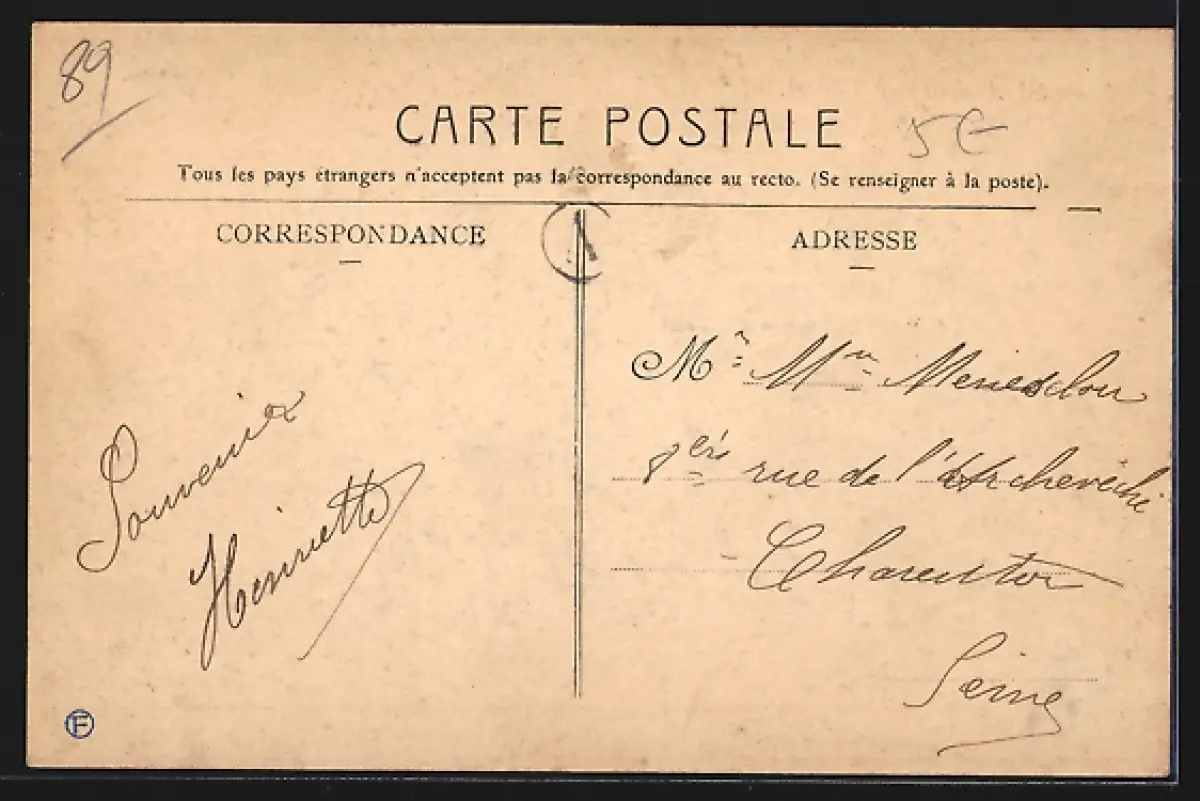 89
CARTE POSTALE
5€
Tous les pays étrangers n'acceptent pas la correspondance au recto. (Se renseigner à la poste).
CORRESPONDANCE
ADRESSE
Souvenir
Henriette
Mr Mme
rue de l'Archevêché
Charenton
Seine
F